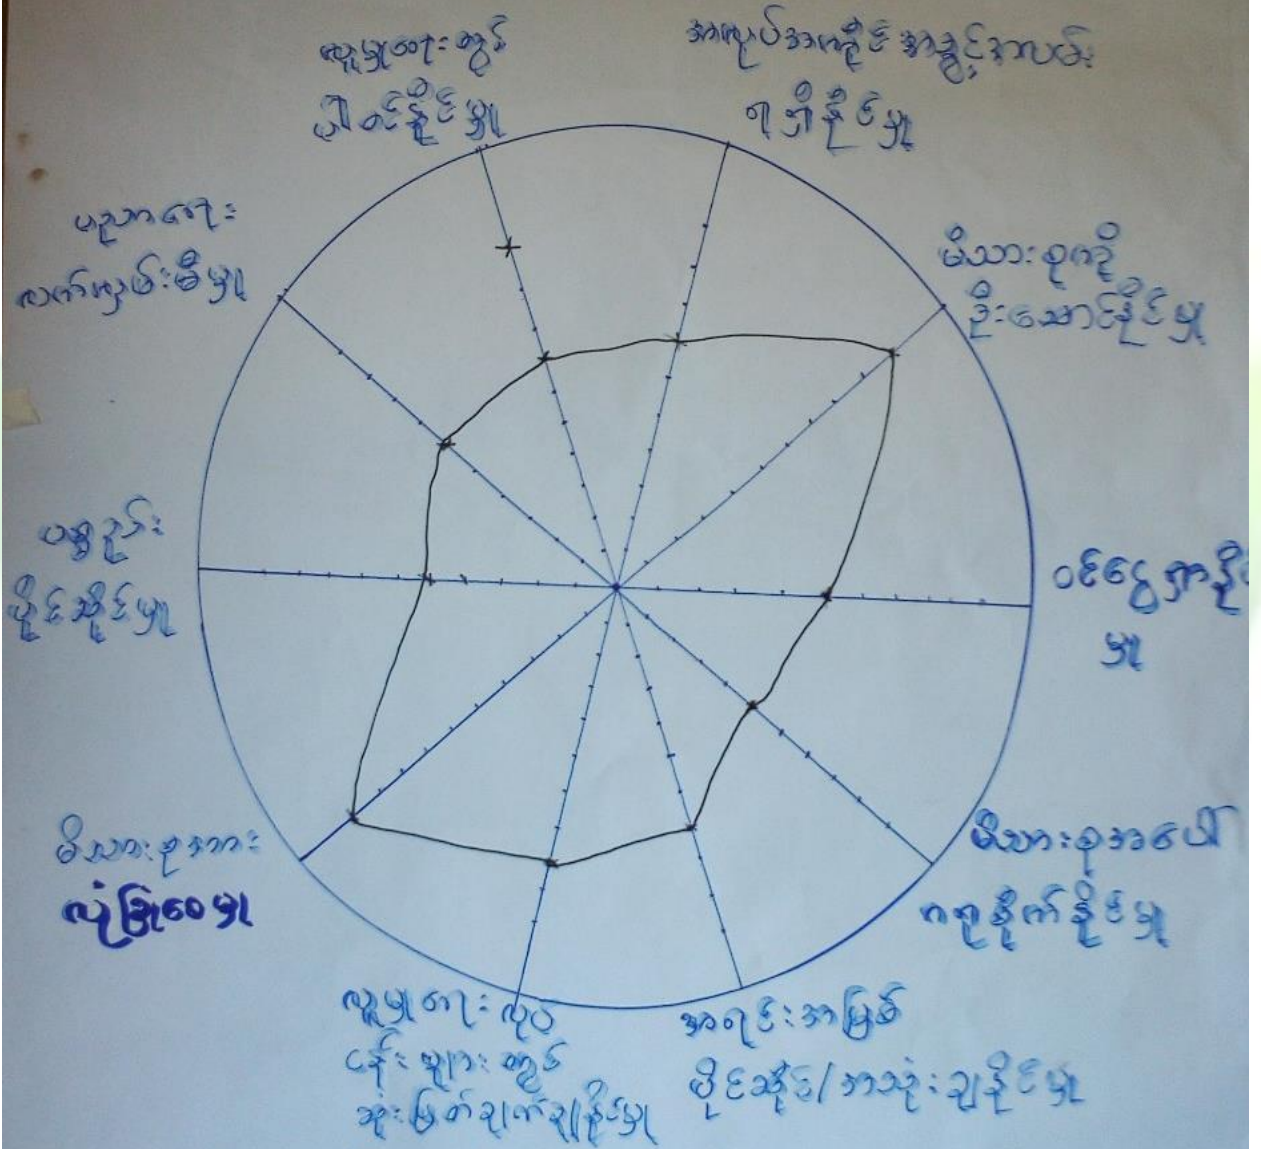 လူမှုရေးတွင်
ပါဝင်နိုင်မှု
အလုပ်အကိုင် အခွင့်အလမ်း
ရရှိနိုင်မှု
မိသားစုကို
ဦးဆောင်နိုင်မှု
ဝင်ငွေရှာနို
မှု
မိသားစုအပေါ်
ဂရုစိုက်နိုင်မှု
အရင်းအမြစ်
ပိုင်ဆိုင်/အသုံးချနိုင်မှု
လူမှုရေး လုပ်
ငန်းများတွင်
ဆုံးဖြတ်ချက်ချနိုင်မှု
မိသားစုအား
လုံခြုံစေမှု
ပစ္စည်း
ပိုင်ဆိုင်မှု
ပညာရေး
လက်လှမ်းမီမှု